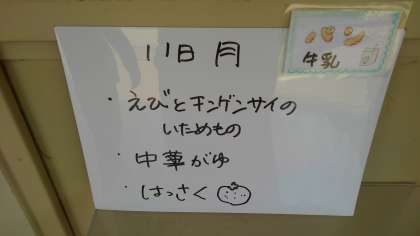 11日 月
パン
牛乳
・えびとチンゲンサイの
いためもの
・中華がゆ
・はっさく